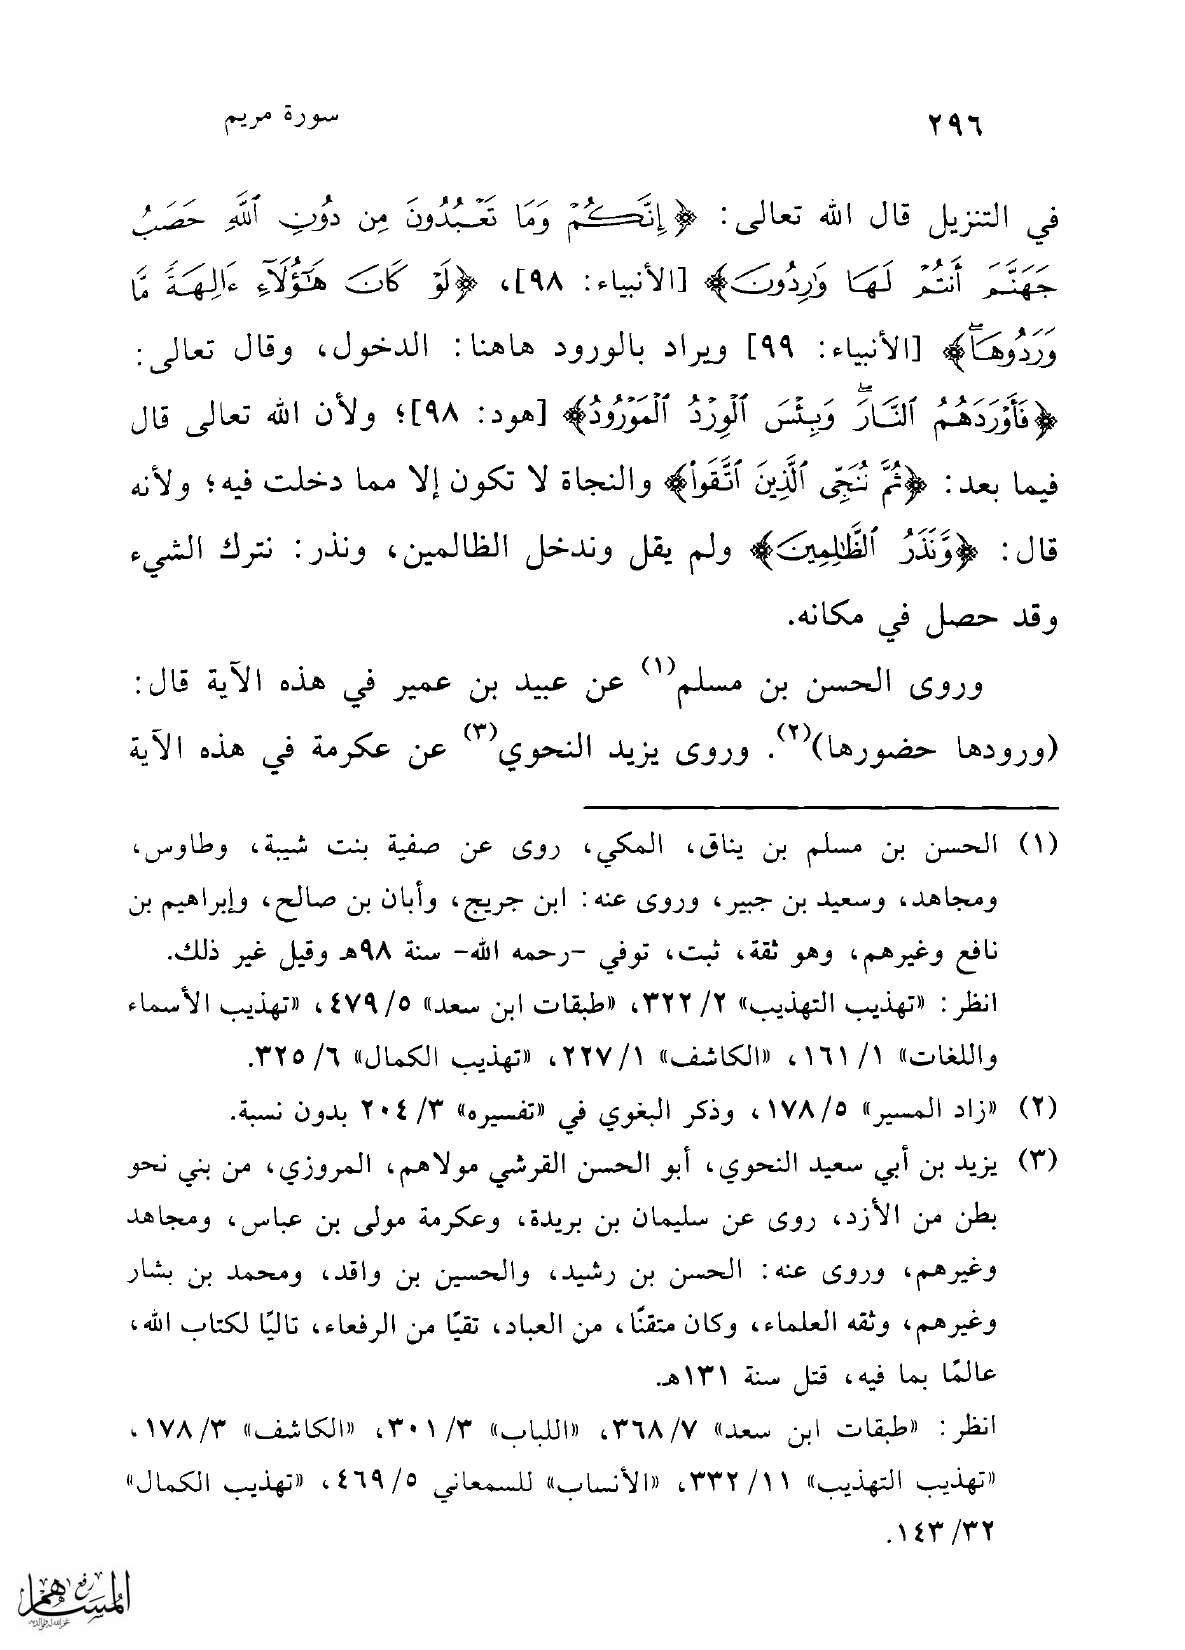 ٢٩٦
سورة مريم
في التنزيل قال الله تعالى: ﴿إِنَّكُمْ وَمَا تَعْبُدُونَ مِن دُونِ ٱللَّهِ حَصَبُ
جَهَنَّمَ أَنتُمْ لَهَا وَٰرِدُونَ﴾ [الأنبياء: ٩٨]، ﴿لَوْ كَانَ هَٰٓؤُلَآءِ ءَالِهَةً مَّا
وَرَدُوهَاۖ﴾ [الأنبياء: ٩٩] ويراد بالورود هاهنا: الدخول، وقال تعالى:
﴿فَأَوْرَدَهُمُ ٱلنَّارَۖ وَبِئْسَ ٱلْوِرْدُ ٱلْمَوْرُودُ﴾ [هود: ٩٨]؛ ولأن الله تعالى قال
فيما بعد: ﴿ثُمَّ نُنَجِّى ٱلَّذِينَ ٱتَّقَوا۟﴾ والنجاة لا تكون إلا مما دخلت فيه؛ ولأنه
قال: ﴿وَّنَذَرُ ٱلظَّٰلِمِينَ﴾ ولم يقل وندخل الظالمين، ونذر: نترك الشيء
وقد حصل في مكانه.
وروى الحسن بن مسلم(١) عن عبيد بن عمير في هذه الآية قال:
(ورودها حضورها)(٢). وروى يزيد النحوي(٣) عن عكرمة في هذه الآية
(١) الحسن بن مسلم بن يناق، المكي، روى عن صفية بنت شيبة، وطاوس،
ومجاهد، وسعيد بن جبير، وروى عنه: ابن جريج، وأبان بن صالح، وإبراهيم بن
نافع وغيرهم، وهو ثقة، ثبت، توفي -رحمه الله- سنة ٩٨هـ وقيل غير ذلك.
انظر: «تهذيب التهذيب» ٢/ ٣٢٢، «طبقات ابن سعد» ٥/ ٤٧٩، «تهذيب الأسماء
واللغات» ١/ ١٦١، «الكاشف» ١/ ٢٢٧، «تهذيب الكمال» ٦/ ٣٢٥.
(٢) «زاد المسير» ٥/ ١٧٨، وذكر البغوي في «تفسيره» ٣/ ٢٠٤ بدون نسبة.
(٣) يزيد بن أبي سعيد النحوي، أبو الحسن القرشي مولاهم، المروزي، من بني نحو
بطن من الأزد، روى عن سليمان بن بريدة، وعكرمة مولى بن عباس، ومجاهد
وغيرهم، وروى عنه: الحسن بن رشيد، والحسين بن واقد، ومحمد بن بشار
وغيرهم، وثقه العلماء، وكان متقنًا، من العباد، تقيًا من الرفعاء، تاليًا لكتاب الله،
عالمًا بما فيه، قتل سنة ١٣١هـ.
انظر: «طبقات ابن سعد» ٧/ ٣٦٨، «اللباب» ٣/ ٣٠١، «الكاشف» ٣/ ١٧٨،
«تهذيب التهذيب» ١١/ ٣٣٢، «الأنساب» للسمعاني ٥/ ٤٦٩، «تهذيب الكمال»
٣٢/ ١٤٣.